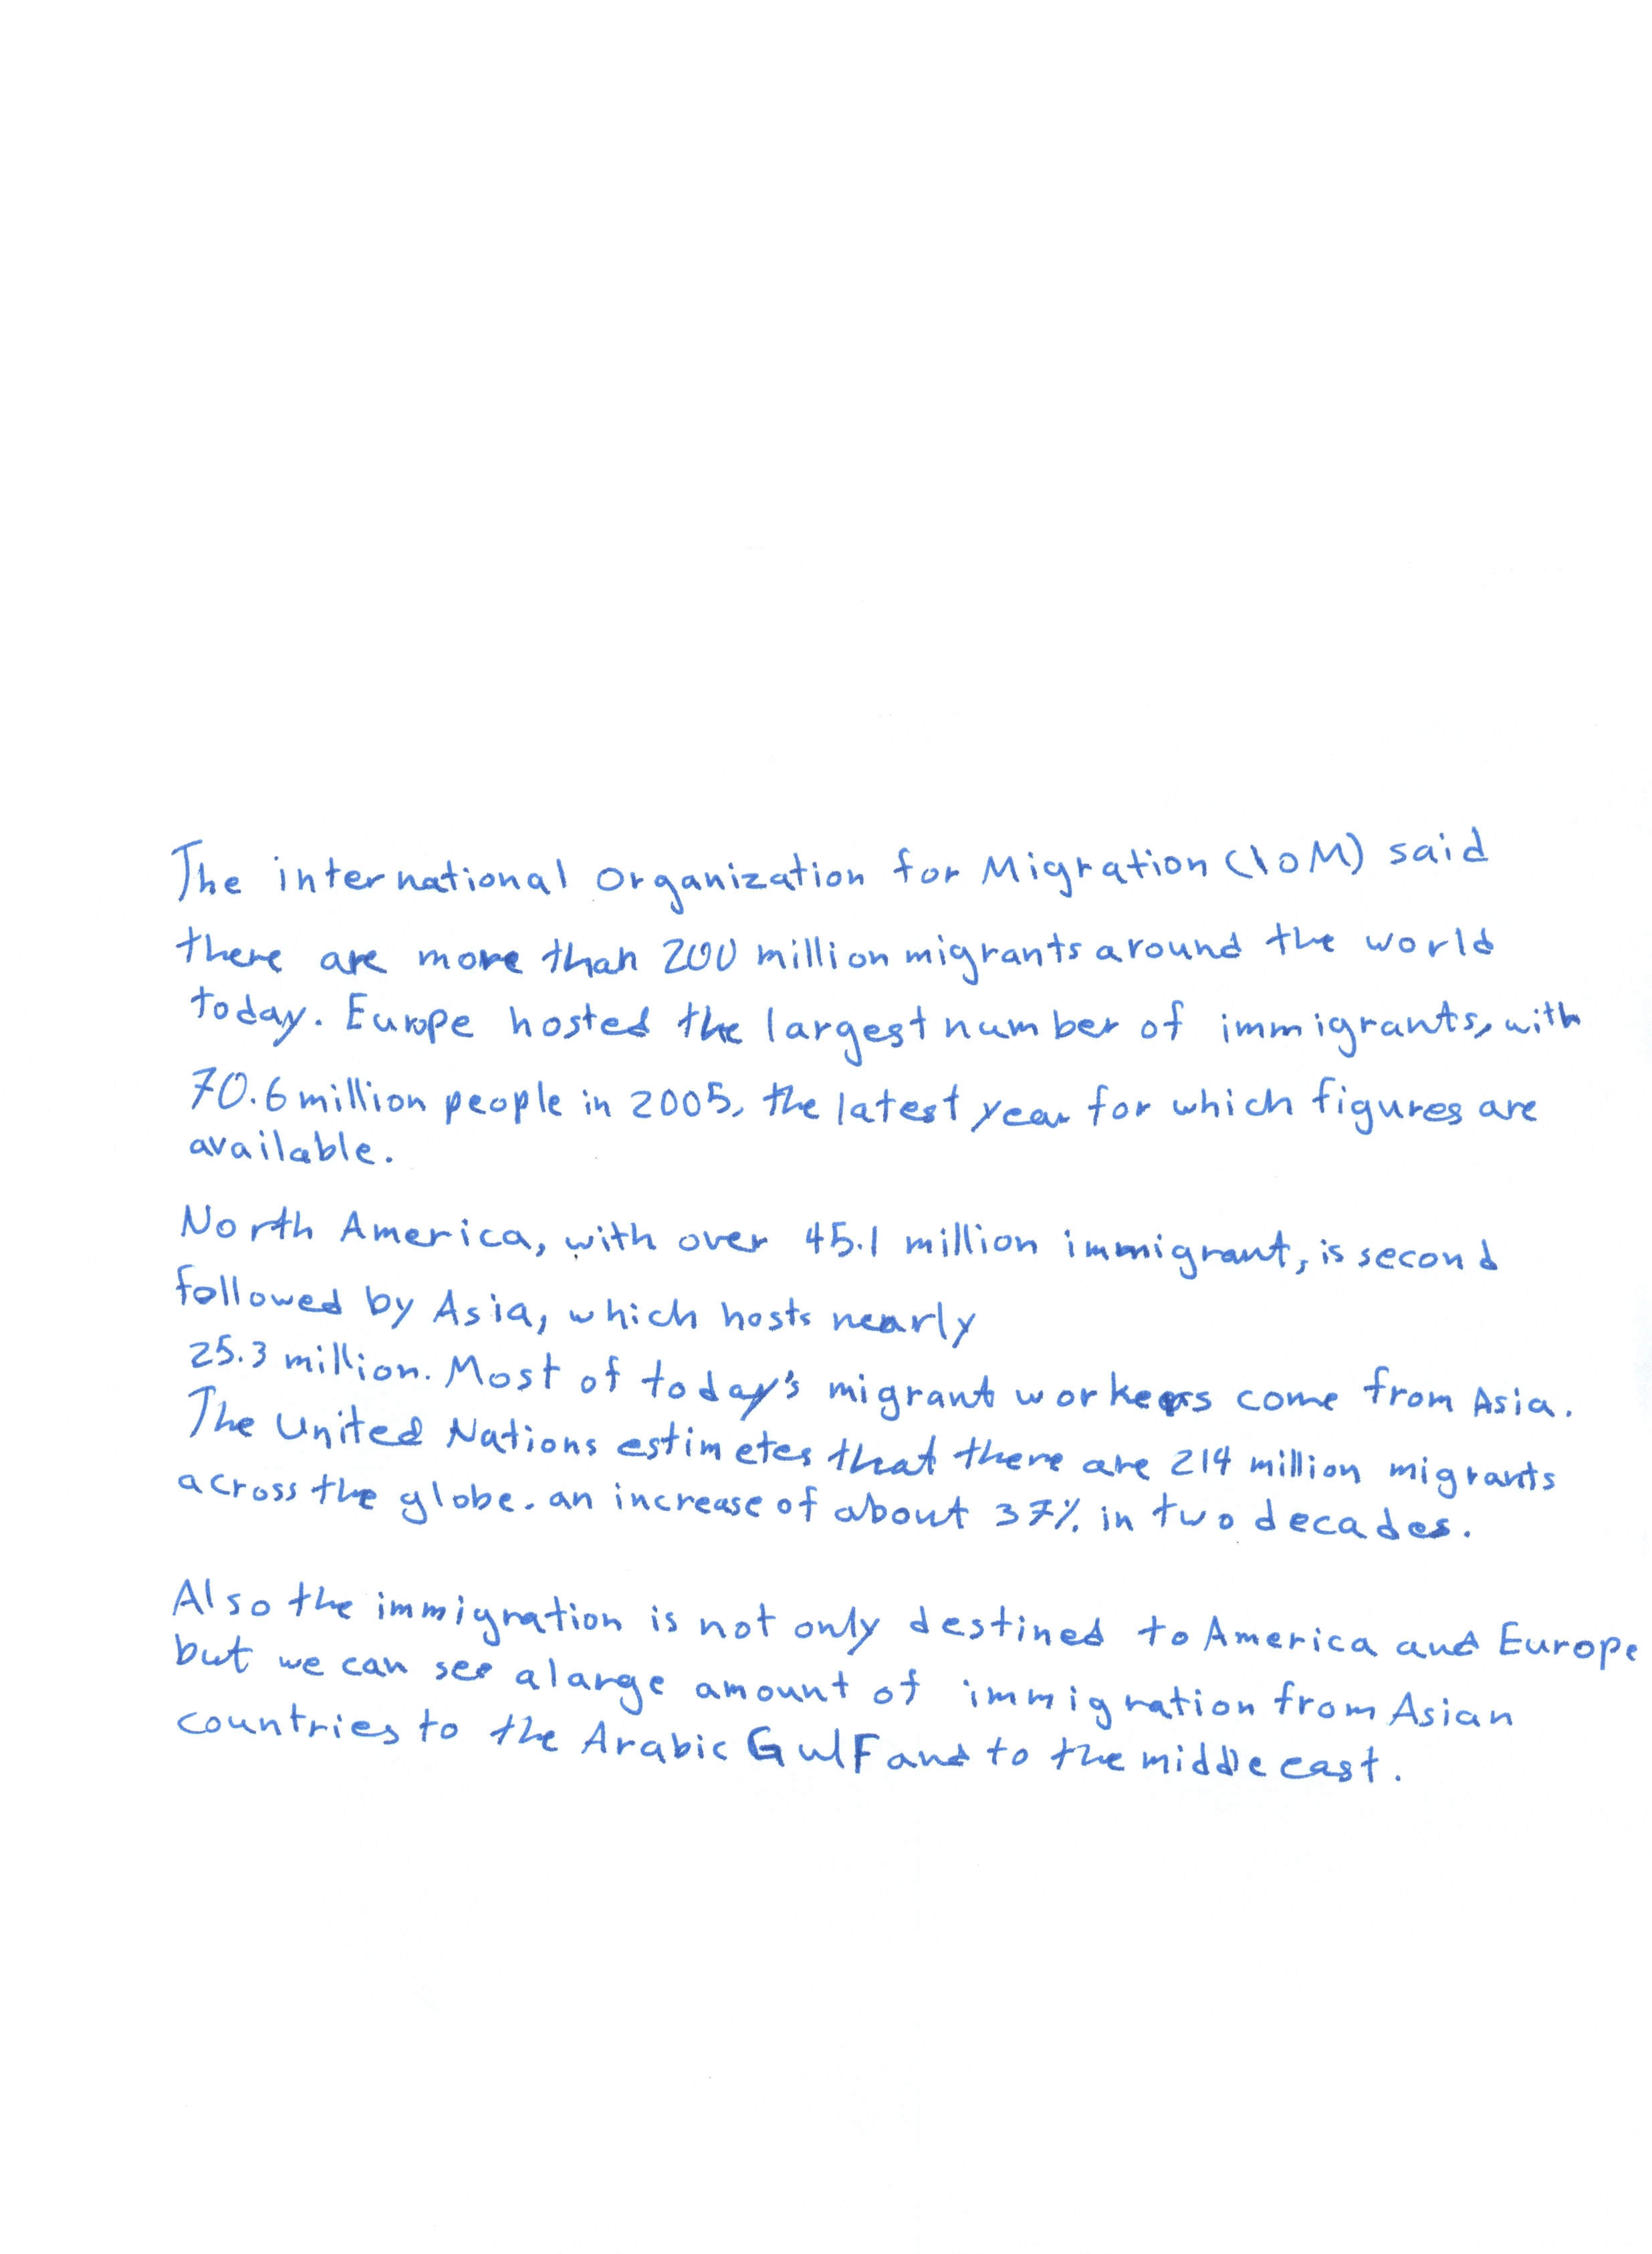 The international organization for Migration (IOM) said
there are more than 200 million migrants around the world
today. Europe hosted the largest number of immigrants, with
70.6 million people in 2005, the latest year for which figures are
available.
North America, with over 45.1 million immigrant, is second
followed by Asia, which hosts nearly
25.3 million. Most of today's migrant workers come from Asia.
The United Nations estimetes that there are 214 million migrants
across the globe. an increase of about 37% in two decades.
Also the immigration is not only destined to America and Europe
but we can see a large amount of immigration from Asian
countries to the Arabic Gulf and to the middle east.